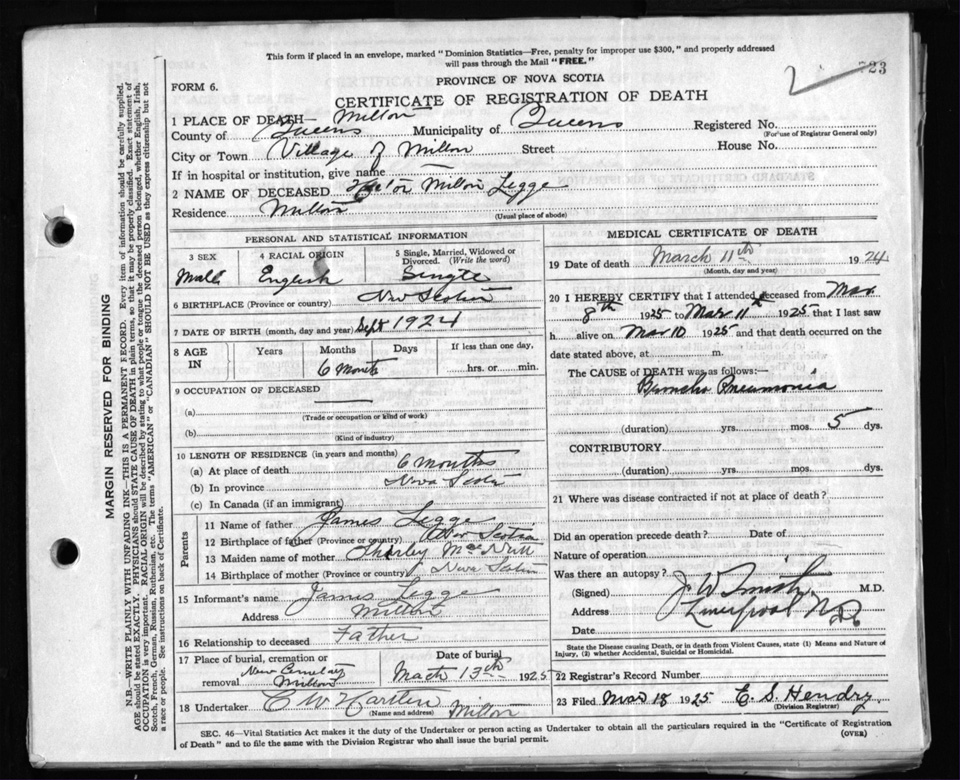 This form if placed in an envelope, marked "Dominion Statistics—Free, penalty for improper use $300," and properly addressed
will pass through the Mail "FREE."
723
FORM 6.
PROVINCE OF NOVA SCOTIA
CERTIFICATE OF REGISTRATION OF DEATH
1 PLACE OF DEATH— Milton
County of Queens Municipality of Queens Registered No.
(For use of Registrar General only)
City or Town Village of Milton Street House No.
If in hospital or institution, give name
2 NAME OF DECEASED Milton Legge
Residence Milton
(Usual place of abode)
PERSONAL AND STATISTICAL INFORMATION
3 SEX 4 RACIAL ORIGIN 5 Single, Married, Widowed or
Divorced. (Write the word)
Male English Single
6 BIRTHPLACE (Province or country) Nova Scotia
7 DATE OF BIRTH (month, day and year) Sept 1924
8 AGE IN Years Months Days If less than one day,
6 Months hrs. or min.
9 OCCUPATION OF DECEASED
(a)
(Trade or occupation or kind of work)
(b)
(Kind of industry)
10 LENGTH OF RESIDENCE (in years and months)
(a) At place of death 6 months
(b) In province Nova Scotia
(c) In Canada (if an immigrant)
Parents
11 Name of father James Legge
12 Birthplace of father (Province or country) Nova Scotia
13 Maiden name of mother
14 Birthplace of mother (Province or country) Nova Scotia
15 Informant's name James Legge
Address Milton
16 Relationship to deceased Father
17 Place of burial, cremation or Date of burial
removal New Cemetary Milton March 13th 1925
18 Undertaker C W Hartlen Milton
(Name and address)
MEDICAL CERTIFICATE OF DEATH
19 Date of death March 11th 1924
(Month, day and year)
20 I HEREBY CERTIFY that I attended deceased from Mar
8th 1925 to Mar 11th 1925 that I last saw
h alive on Mar 10 1925 and that death occurred on the
date stated above, at m.
The CAUSE OF DEATH was as follows:—
Broncho Pneumonia
(duration) yrs. mos. 5 dys.
CONTRIBUTORY
(duration) yrs. mos. dys.
21 Where was disease contracted if not at place of death?
Did an operation precede death? Date of
Nature of operation
Was there an autopsy?
(Signed) J W Smith M.D.
Address Liverpool N.S.
Date
State the Disease causing Death, or in death from Violent Causes, state (1) Means and Nature of
Injury, (2) whether Accidental, Suicidal or Homicidal.
22 Registrar's Record Number
23 Filed Mar 18 1925 E. S. Hendry
(Division Registrar)
SEC. 46—Vital Statistics Act makes it the duty of the Undertaker or person acting as Undertaker to obtain all the particulars required in the "Certificate of Registration
of Death" and to file the same with the Division Registrar who shall issue the burial permit.
(OVER)
MARGIN RESERVED FOR BINDING
N.B.—WRITE PLAINLY WITH UNFADING INK—THIS IS A PERMANENT RECORD. Every item of information should be carefully supplied.
AGE should be stated EXACTLY. PHYSICIANS should STATE CAUSE OF DEATH in plain terms, so that it may be properly classified. Exact statement of
OCCUPATION is very important. RACIAL ORIGIN will be described by stating to what people or tongue the deceased person belonged, whether English, Irish,
Scotch, French, German, Russian, Ruthenian, etc. The terms "AMERICAN" or "CANADIAN" SHOULD NOT BE USED as they express citizenship but not
a race or people. See instructions on back of Certificate.